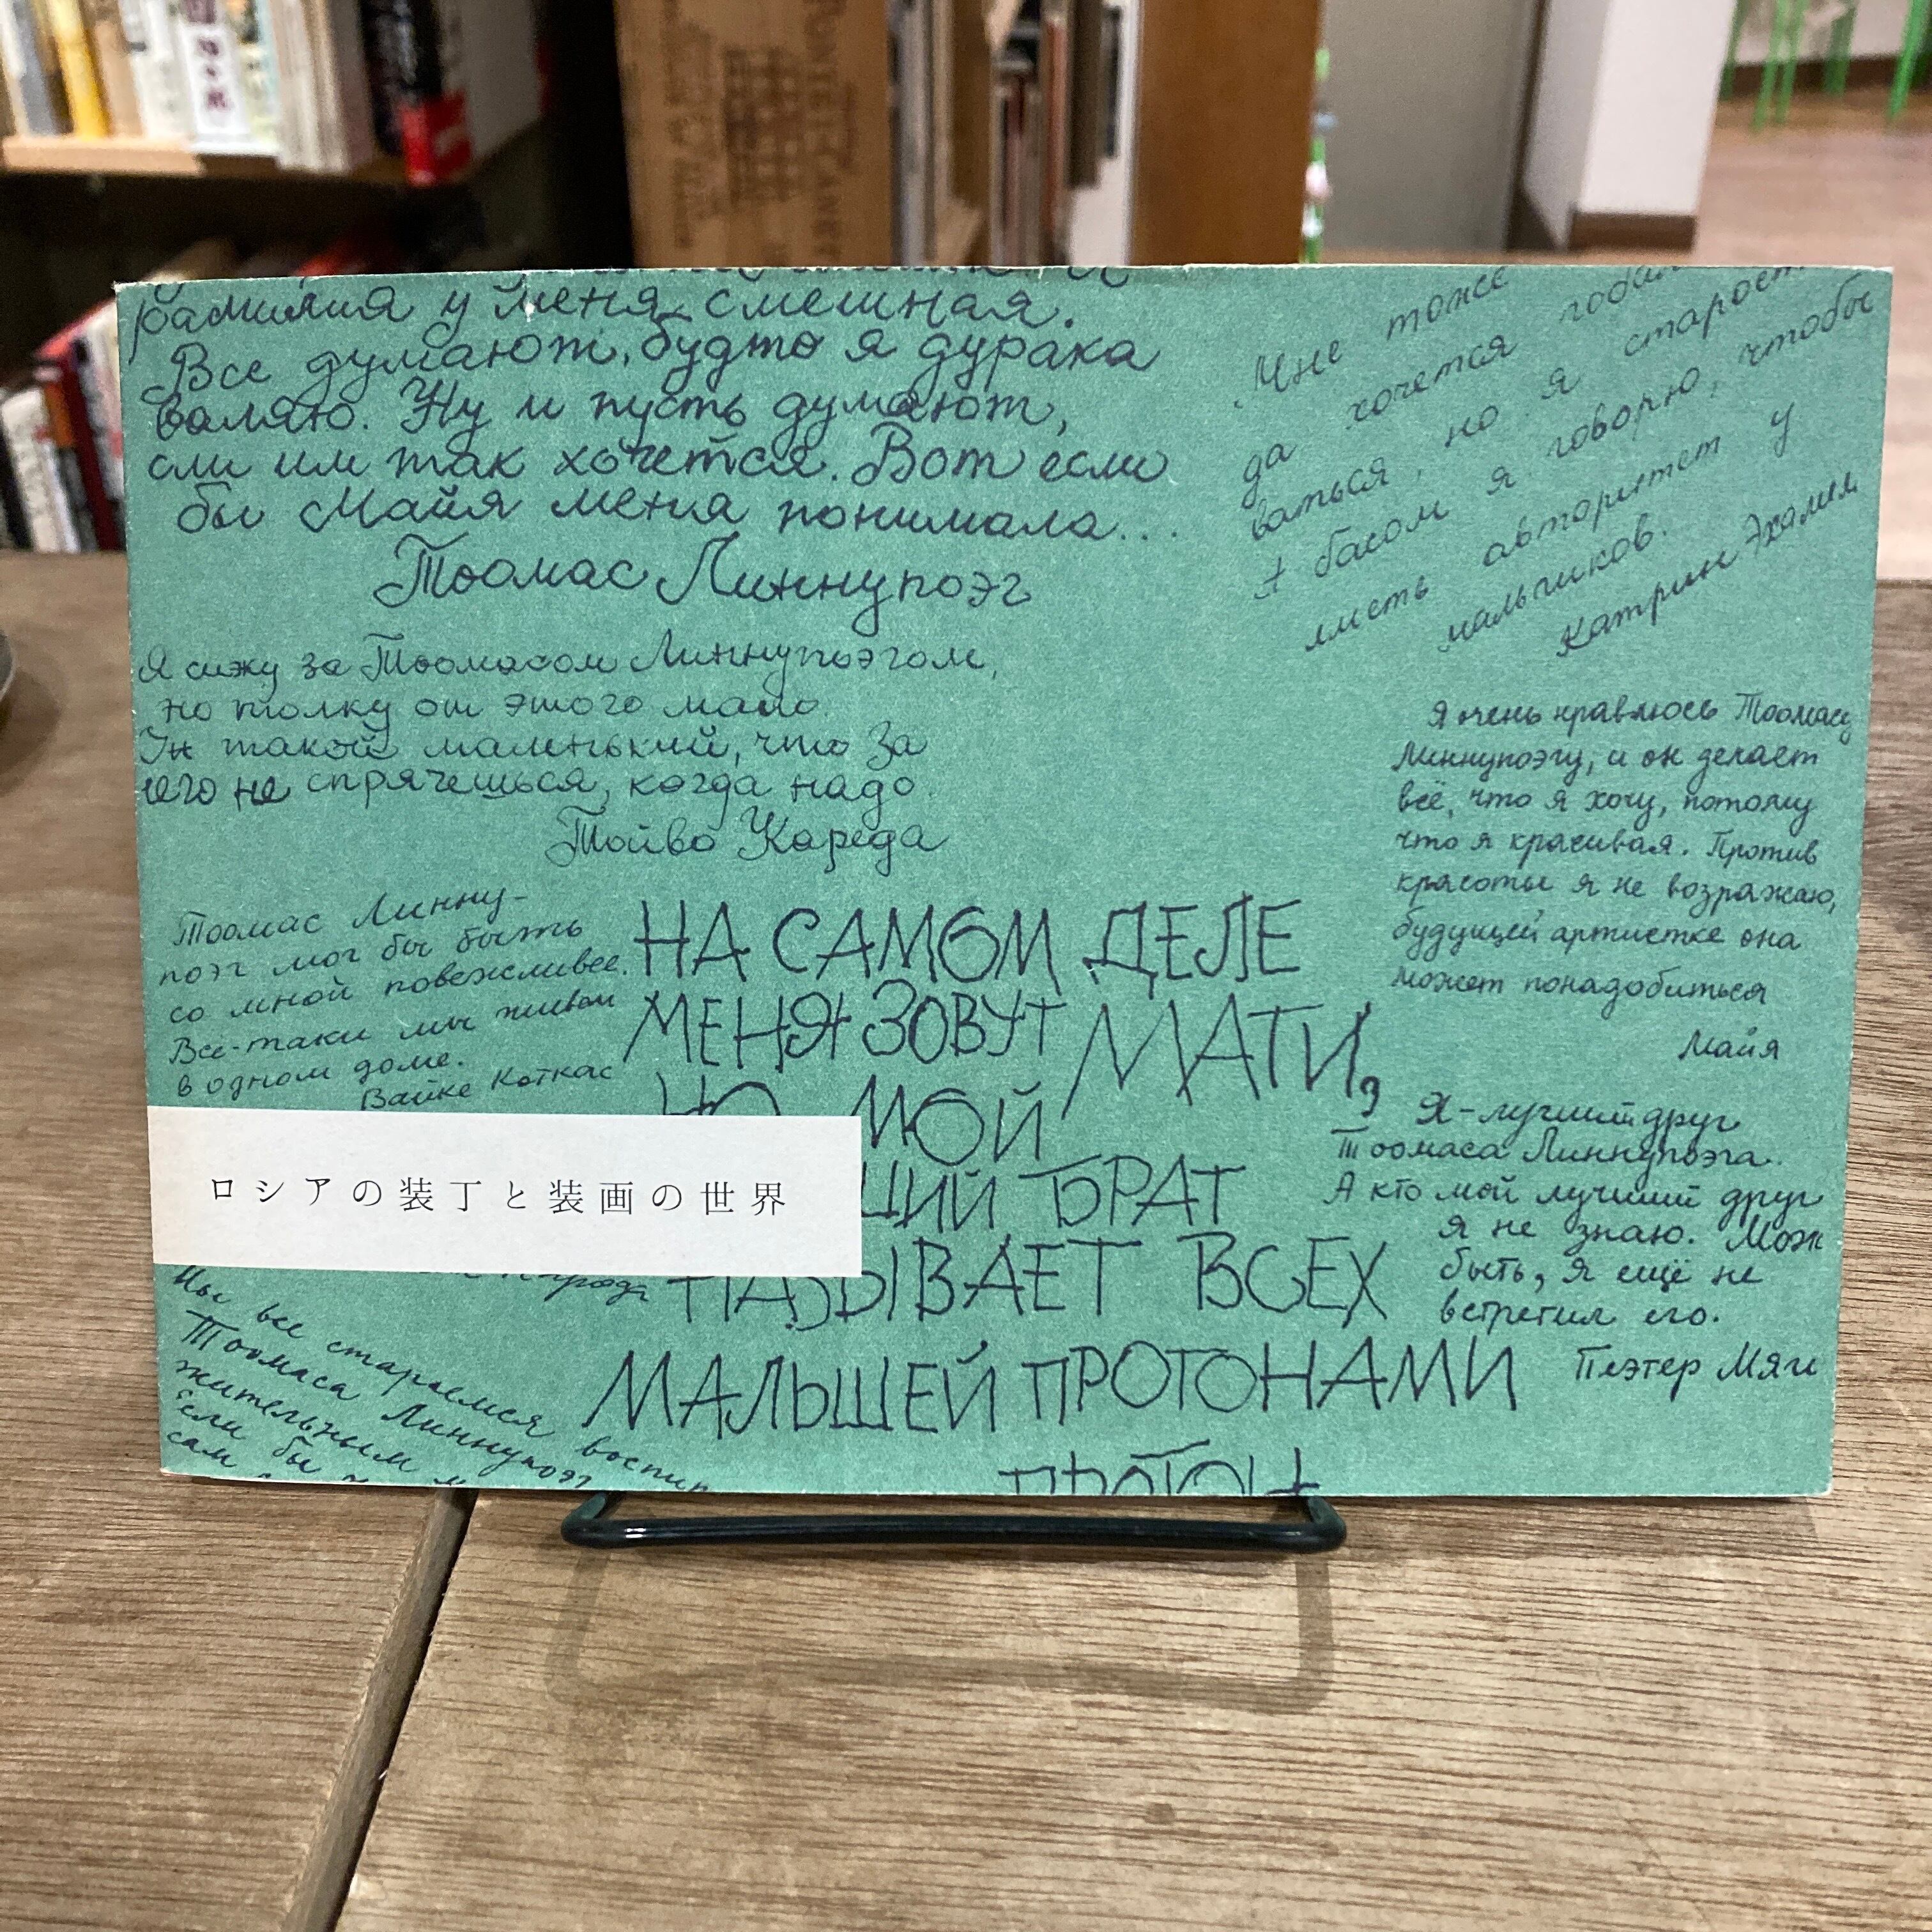 фамилия у меня смешная.
Все думают, будто я дурака
валяю. Ну и пусть думают,
сли им так хочется. Вот если
бы Майя меня понимала...
Тоомас Линнупоэг
Я сижу за Тоомасом Линнупоэгом,
но толку от этого мало.
Он такой маленький, что за
него не спрячешься, когда надо.
Тойво Кареда
Тоомас Линну-
поэг мог бы быть
со мной повежливее.
Всё-таки мы живём
в одном доме.
Вайке Коткас
ロシアの装丁と装画の世界
Мы все стараемся воспит
Тоомаса Линнупоэг
жительным
Если бы
сам
НА САМОМ ДЕЛЕ
МЕНЯ ЗОВУТ МАТИ,
НО МОЙ
ЩИЙ БРАТ
НАЗЫВАЕТ ВСЕХ
МАЛЫШЕЙ ПРОТОНАМИ
ПРОТОН
Мне тоже годам
да хочется старост
ваться, но я
Я басом я говорю, чтобы
иметь авторитет у
мальчиков.
Катрин Эхамел
Я очень нравлюсь Тоомасу
Линнупоэгу, и он делает
всё, что я хочу, потому
что я красивая. Против
красоты я не возражаю,
будущей артистке она
может понадобиться
Майя
Я - лучший друг
Тоомаса Линнупоэга.
А кто мой лучший друг
я не знаю. Мож
быть, я ещё не
встретил его.
Пеэтер Мяги